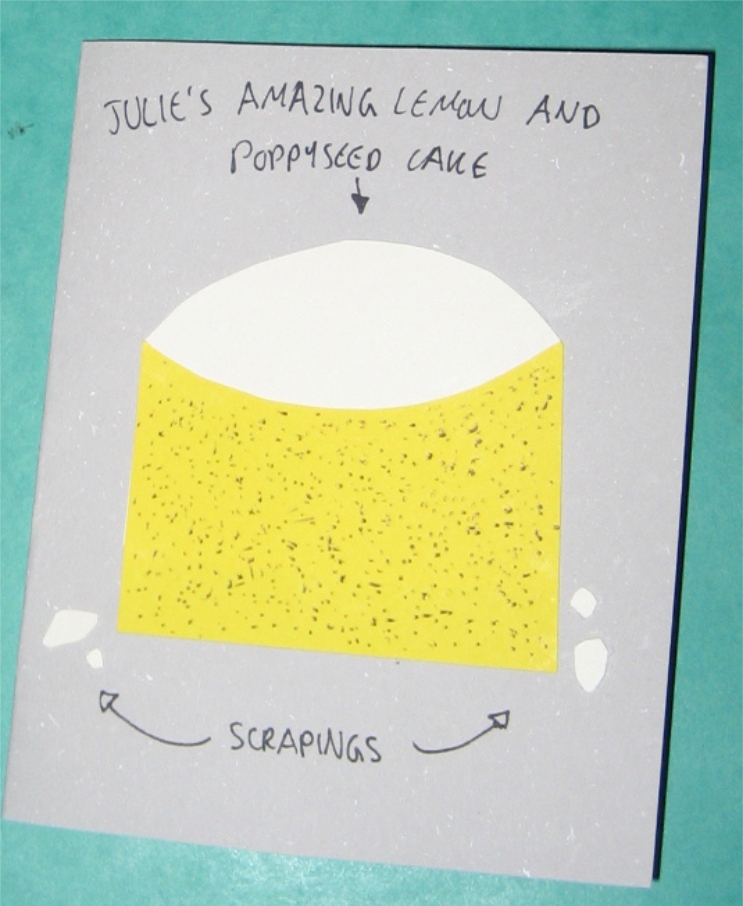 JULIE'S AMAZING LEMON AND
POPPYSEED CAKE
SCRAPINGS